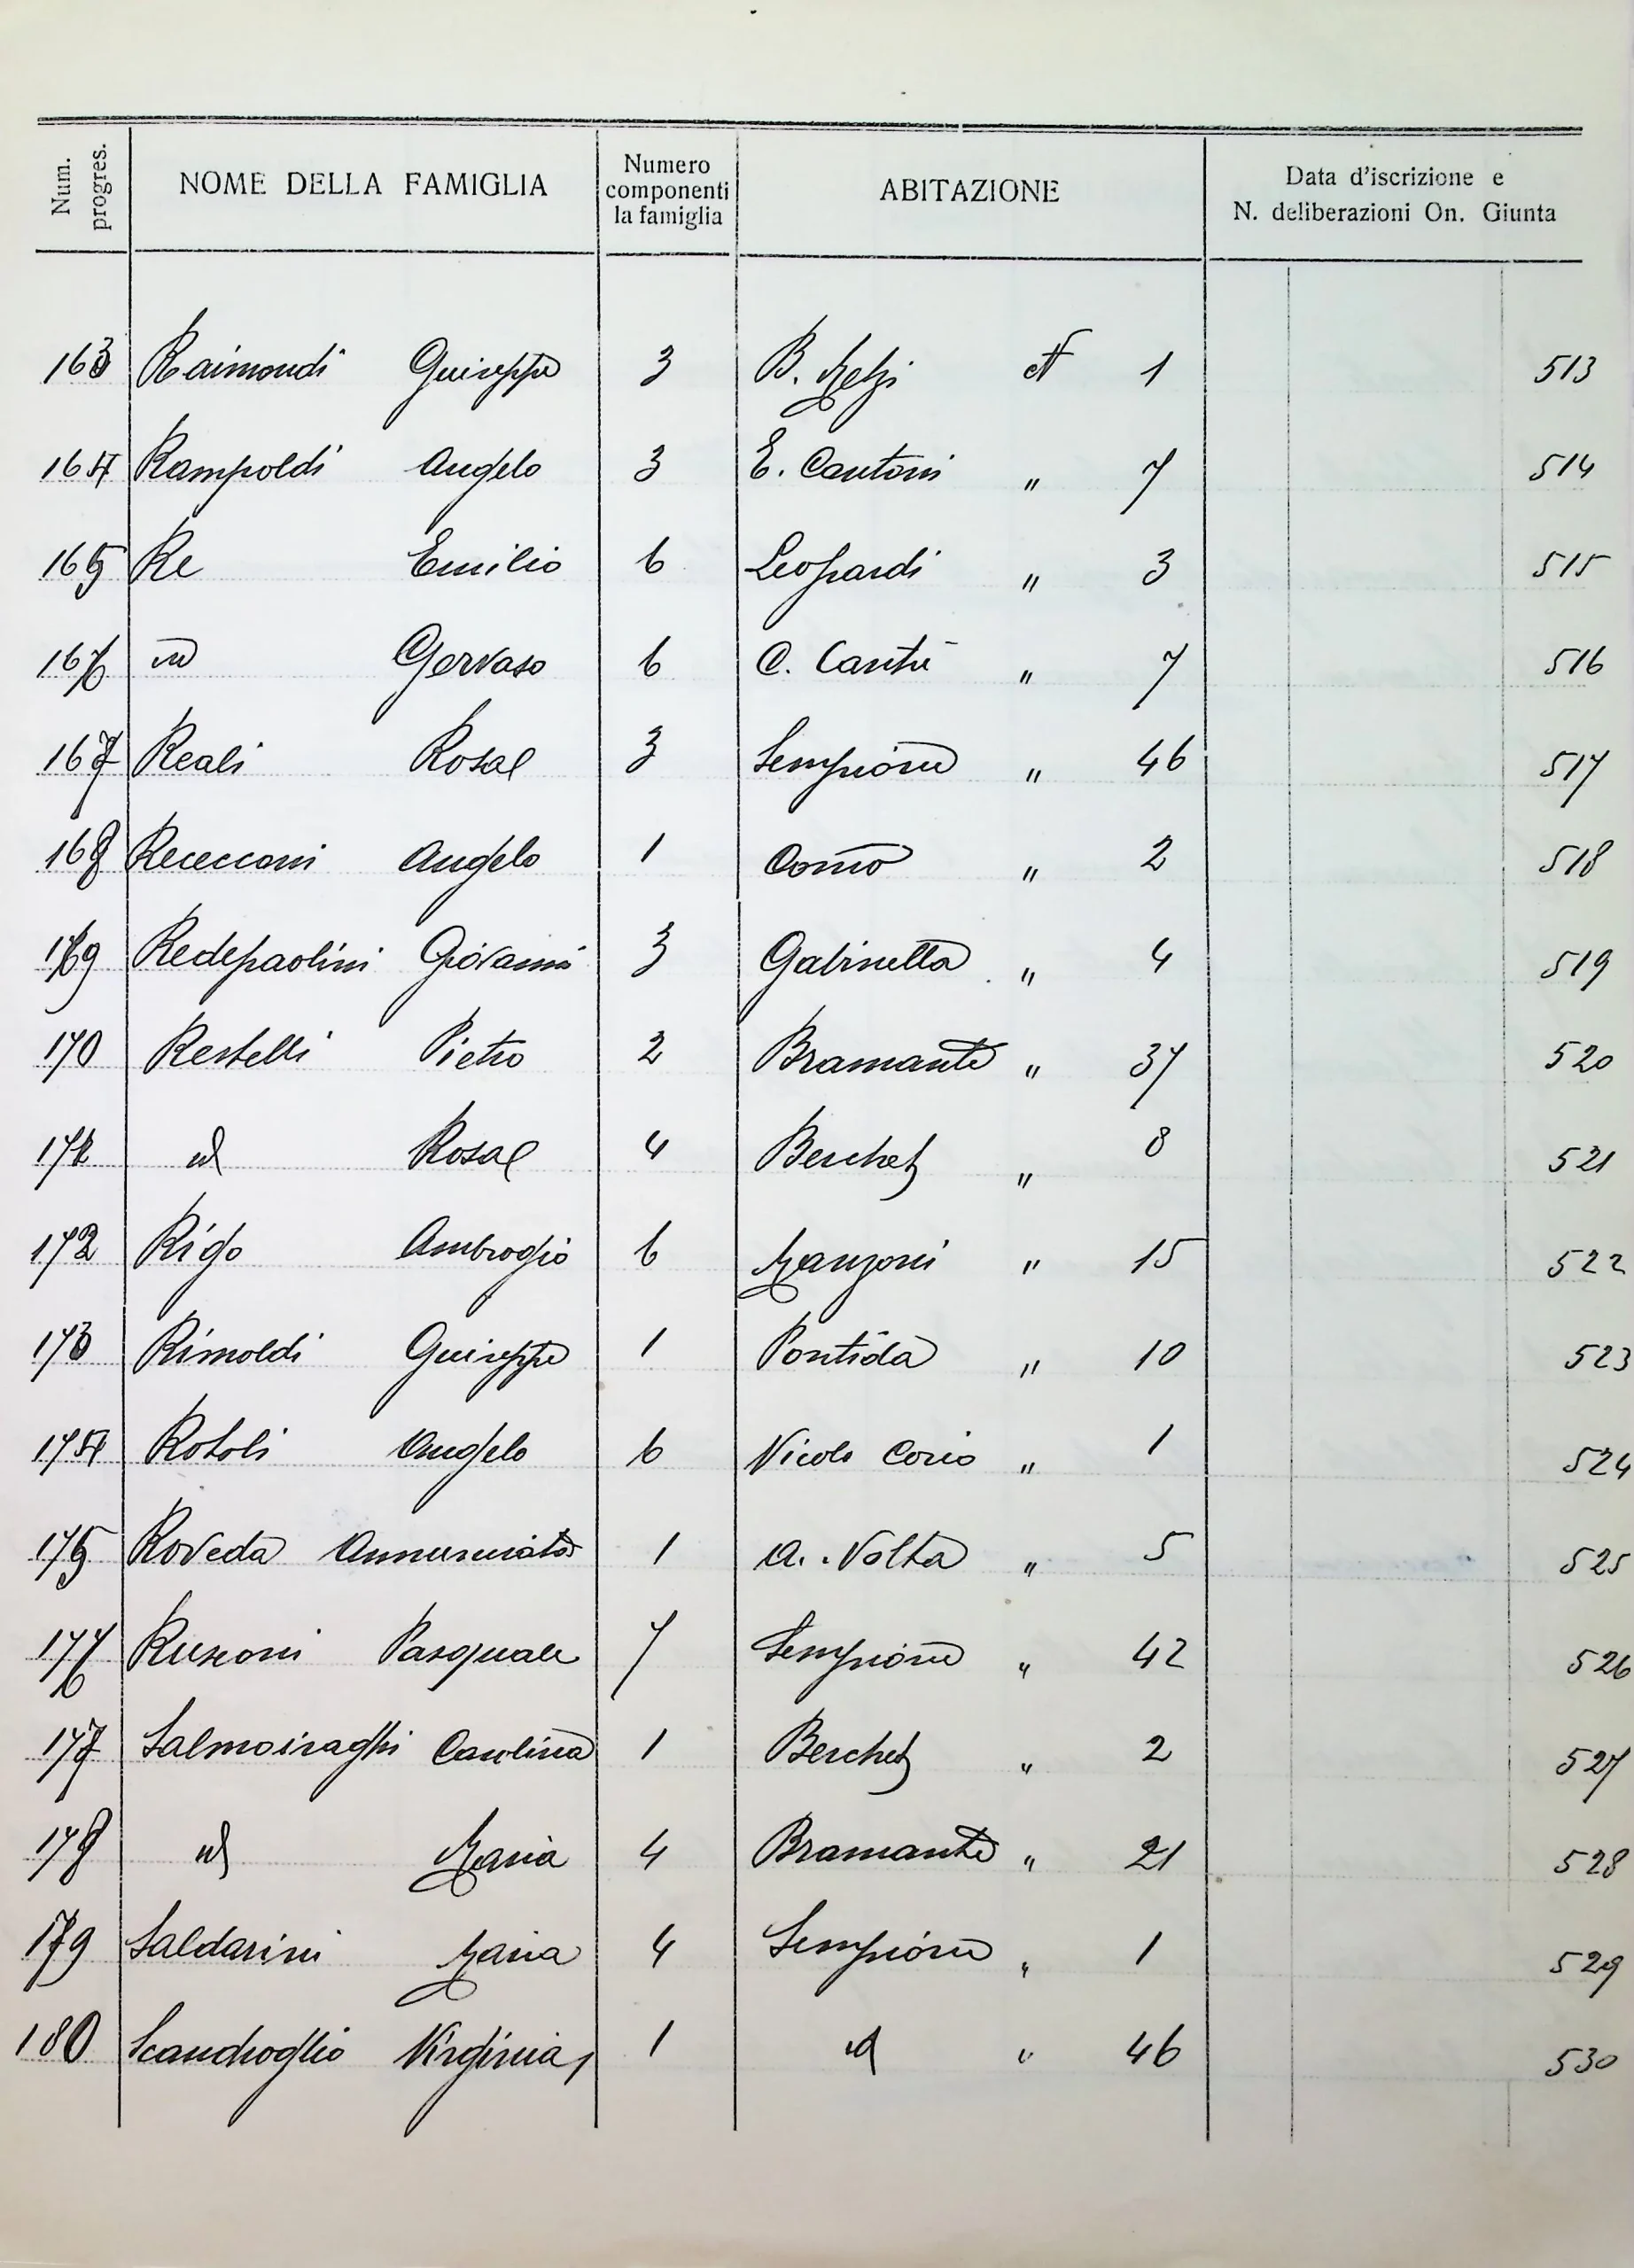 Num. progres.
NOME DELLA FAMIGLIA
Numero componenti la famiglia
ABITAZIONE
Data d'iscrizione e N. deliberazioni On. Giunta
163 Raimondi Giuseppe 3 B. Melzi N 1 513
164 Rampoldi Angelo 3 E. Cantoni " 7 514
165 Re Emilio 6 Leopardi " 3 515
166 id Gervaso 6 C. Cantù " 7 516
167 Reali Rosa 3 Sempione " 46 517
168 Rececconi Angelo 1 Como " 2 518
169 Redepaolini Giovanni 3 Gabinella " 4 519
170 Restelli Pietro 2 Bramante " 37 520
171 id Rosa 4 Berchet " 8 521
172 Rigo Ambrogio 6 Manzoni " 15 522
173 Rimoldi Giuseppe 1 Pontida " 10 523
174 Rotoli Angelo 6 Nicolo Corio " 1 524
175 Roveda Annunciata 1 A. Volta " 5 525
176 Rusconi Pasquale 7 Sempione " 42 526
177 Salmoiraghi Carolina 1 Berchet " 2 527
178 id Maria 4 Bramante " 21 528
179 Saldarini Maria 4 Sempione " 1 529
180 Scandroglio Virginia 1 id " 46 530